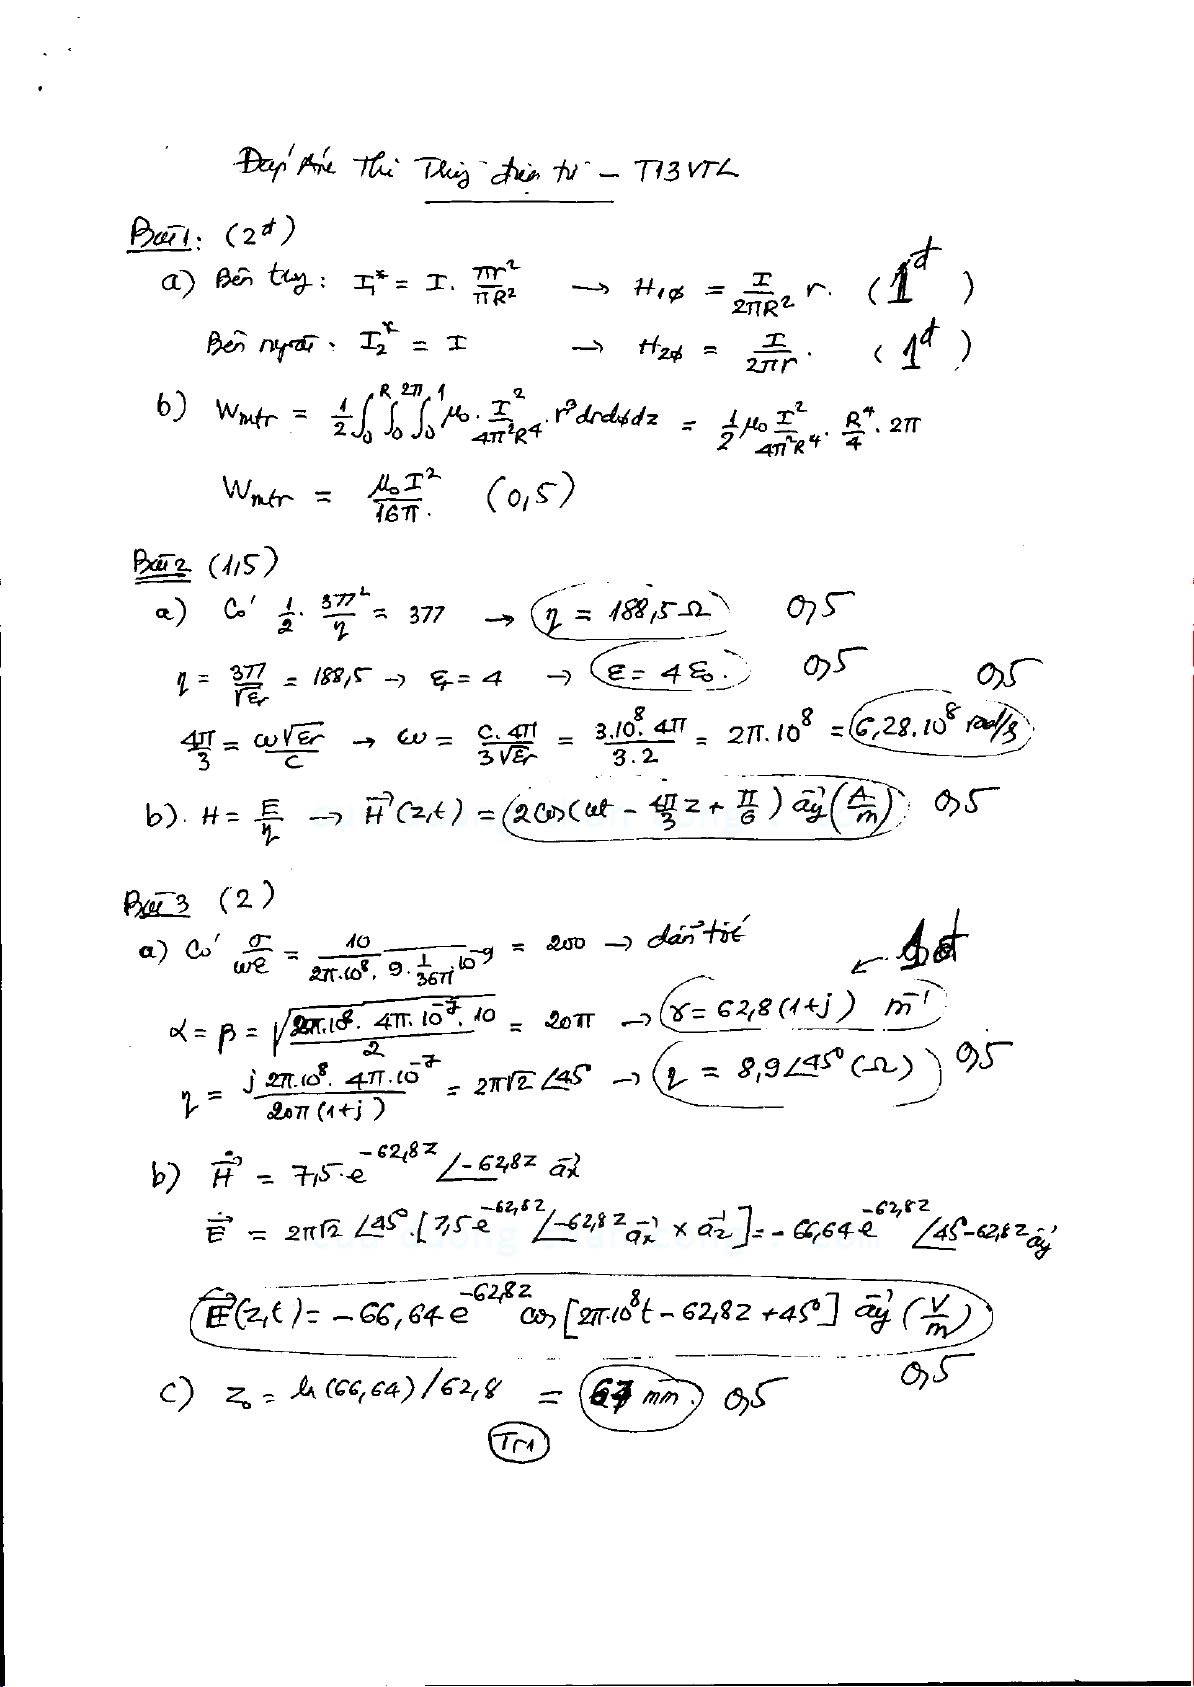 Đáp Án Thi Trường điện từ - T13VTL
Bài 1: (2đ)
a) Bên trong: I₁* = I. πr²/πR² → H₁φ = I/2πR² r. (1đ)
Bên ngoài: I₂* = I → H₂φ = I/2πr. (1đ)
b) Wmtr = 1/2 ∫₀ᴿ ∫₀²π ∫₀¹ μ₀. I²/4π²R⁴. r³drdφdz = 1/2 μ₀ I²/4π²R⁴. R⁴/4. 2π
Wmtr = μ₀I²/16π. (0,5)
Bài 2 (1,5)
a) Có 1/2. 377²/η = 377 → η = 188,5 Ω 0,5
η = 377/√εr = 188,5 → εr = 4 → ε = 4ε₀. 0,5 0,5
4π/3 = ω√εr/c → ω = c.4π/3√εr = 3.10⁸.4π/3.2 = 2π.10⁸ = 6,28.10⁸ rad/s
b). H = E/η → H⃗(z,t) = 2cos(ωt - 4π/3 z + π/6) a⃗y (A/m) 0,5
Bài 3 (2)
a) Có σ/ωε = 10/2π.10⁸. 9. 1/36π.10⁻⁹ = 200 → dẫn tốt
α = β = √(2π.10⁸. 4π.10⁻⁷. 10/2) = 20π → γ = 62,8(1+j) m⁻¹
η = j 2π.10⁸. 4π.10⁻⁷/20π(1+j) = 2π√2 ∠45° → η = 8,9∠45° (Ω) 0,5
b) H⃗ = 7,5.e^-62,8z ∠-62,8z a⃗x
E⃗ = 2π√2 ∠45°.[7,5e^-62,8z ∠-62,8z a⃗x × a⃗z] = -66,64e^-62,8z ∠45°-62,8z a⃗y
E⃗(z,t) = -66,64e^-62,8z cos[2π.10⁸t - 62,8z + 45°] a⃗y (V/m)
0,5
c) z₀ = ln(66,64)/62,8 = 67 mm. 0,5
Tr1